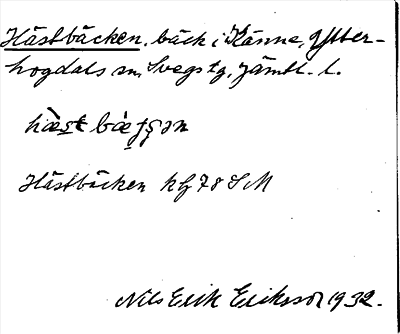 Hästbäcken, bäck i Känne, Ytter-
hogdals sn, Svegs tg, Jämtl. l.
Hästbäcken Kf 78 S M
Nils Erik Eriksson 1932.